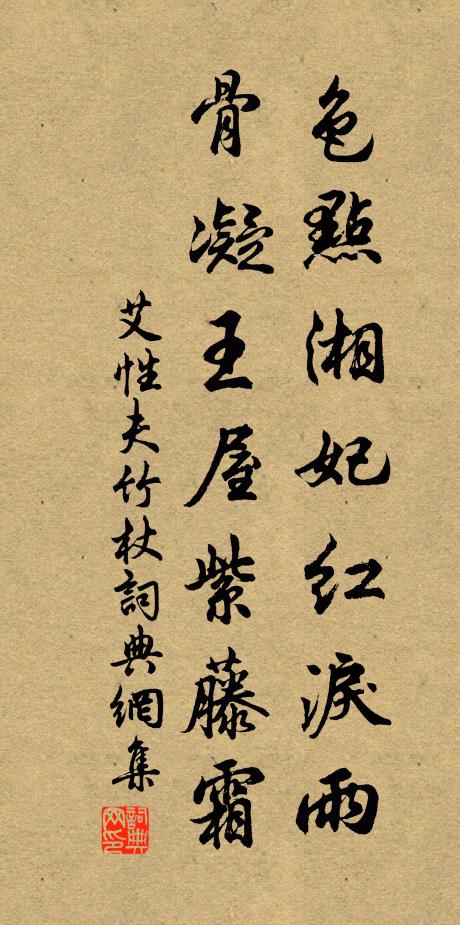 色點湘妃紅淚雨
骨凝王屋紫藤霜
艾性夫竹杖詞典網集
詞典網印